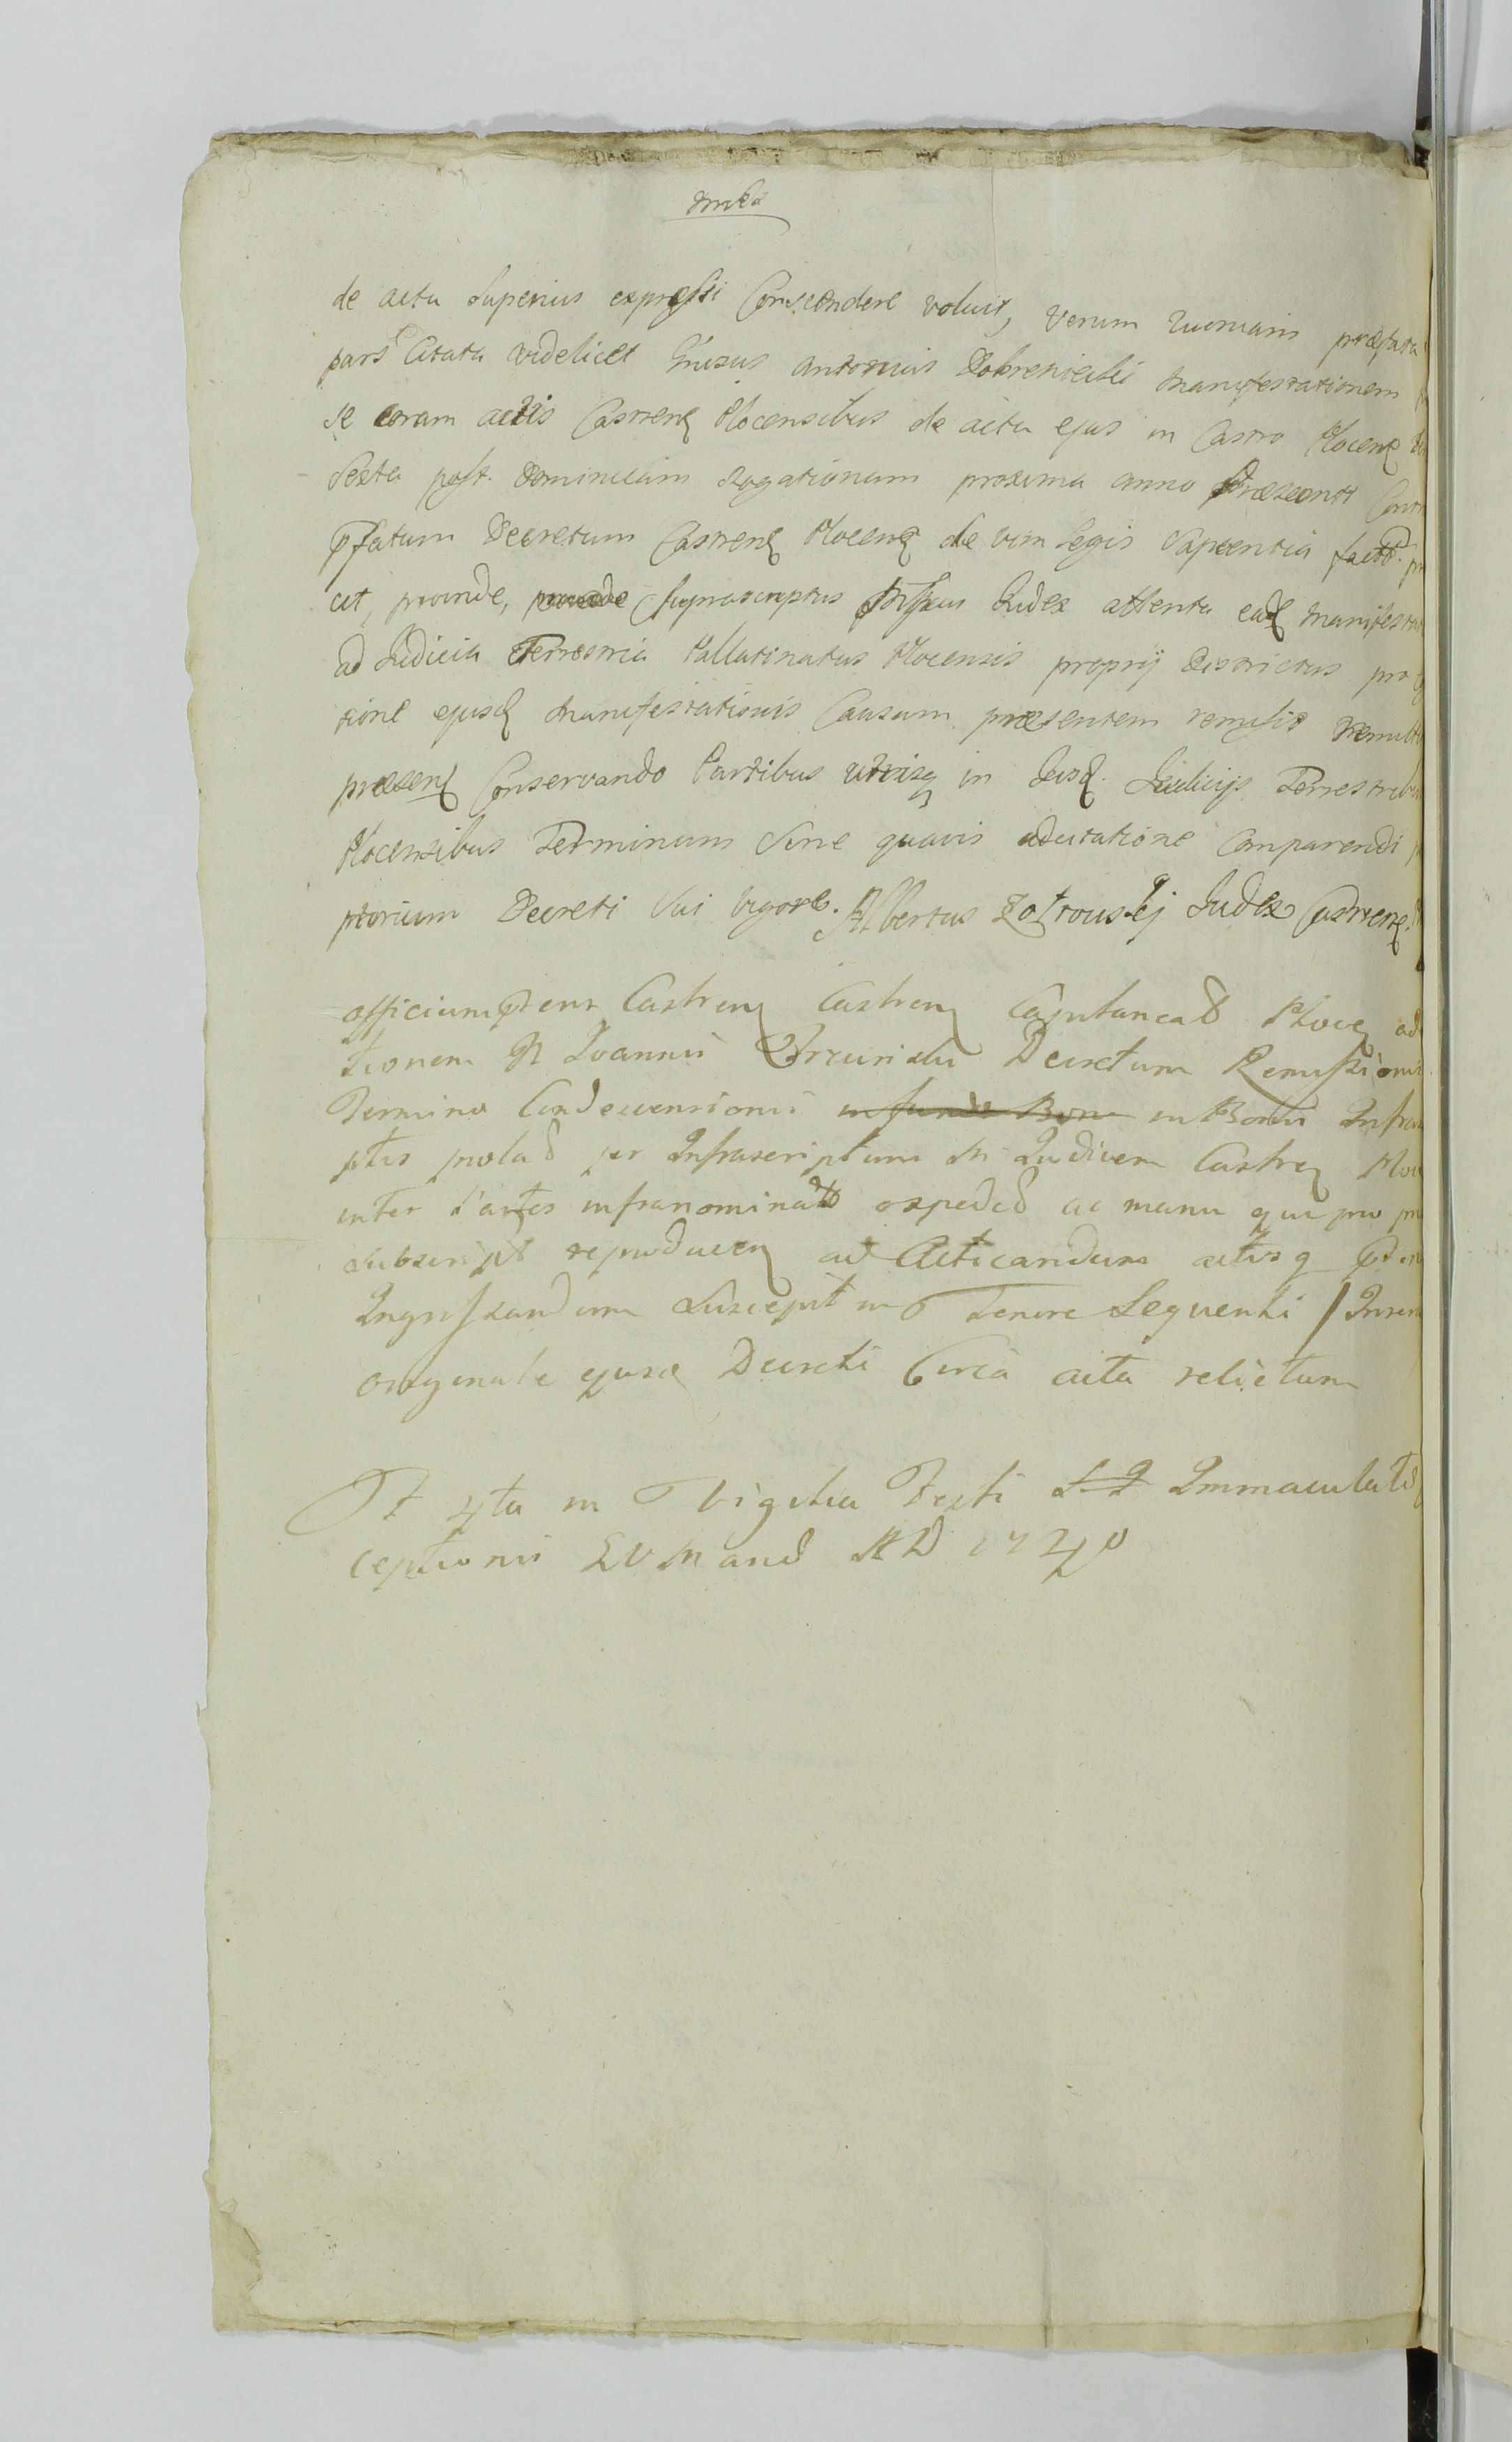 de actu Superius expressi Conscendere voluit, verum quoniam præfata
pars Citata videlicet Gnosus Antonius Dobrenicchi Manifestationem
se coram actis Castrenq Plocensibus de actu ejus in Castro Plocenq
Sexta post Dominicam Rogationum proxima anno præsenti Contr
pfatum Decretum Castrenq Plocenq de vim legis sapientia factd.
cit, proinde, Suprascriptus Judex attenta eadq Manifestat
ad Judicia Terrestria Pallatinatus Plocensis proprij Districtus pro
tione ejusdq Manifestationis Causam præsentem remisit remittit
præsenq Conservando Partibus utrisq in Jusdq. Judicijs Terrestribu
Plocensibus Terminum Sine quavis adcitatione Comparendi
ptorium Decreti Sui vigore. Albertus Zotrouskj Judex Castrenq.
officium ptens Castrenq Castrenq Capitanead Plocq ad
tionem N Joannis Decretum Remissionis
Termino Condescensionis in fundo Bono in Bonis Infra
ptis prolad per Infrascriptum M Judicem Castrq Ploc
inter Partes infranominatd expedid ac manu qui pro
Subscript reproducenq ad Acticandum actisq pten
Ingrossandum Suscepit in Tenore Sequenti / Inser
originale ejusq Decreti Circa acta relictum
Ft 4ta in Vigilia Festi Immaculatd
ceptionis BVM and AD 1740